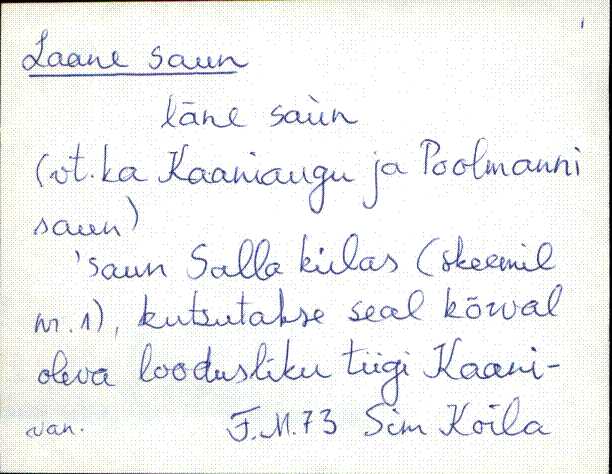 Laane saun
lāne saùn
(vt. ka Kaaniaugu ja Poolmanni
saun)
'saun Salla külas (skeemil
nr. 1), kutsutakse seal kõrval
oleva loodusliku tiigi Kaani-
F.M.73 Sim Koila